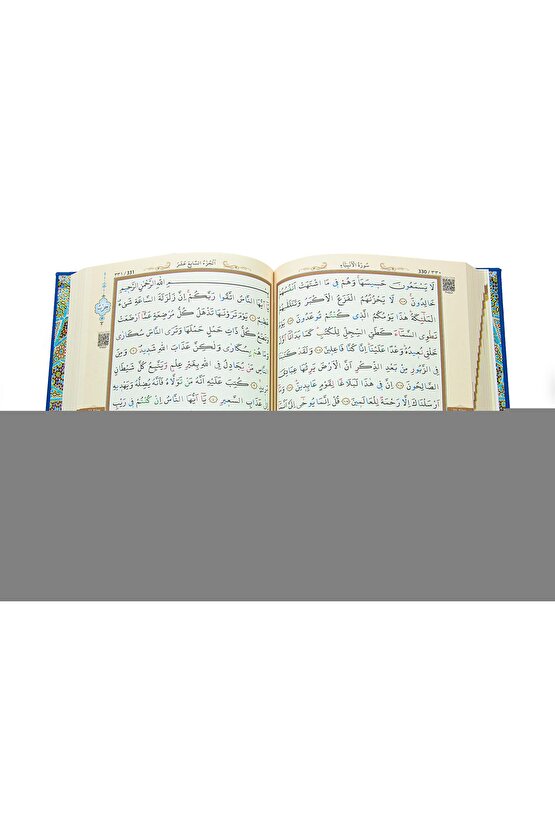 330 / ٣٣٠
سُورَةُ الْاَنْبِيَاءِ
لَا يَسْمَعُونَ حَسِيسَهَا وَهُمْ فِى مَا اشْتَهَتْ اَنْفُسُهُمْ
خَالِدُونَ لَا يَحْزُنُهُمُ الْفَزَعُ الْاَكْبَرُ وَتَتَلَقّٰيهُمُ
الْمَلٰٓئِكَةُ هٰذَا يَوْمُكُمُ الَّذِى كُنْتُمْ تُوعَدُونَ يَوْمَ
نَطْوِى السَّمَٓاءَ كَطَىِّ السِّجِلِّ لِلْكُتُبِ كَمَا بَدَأْنَٓا اَوَّلَ
خَلْقٍ نُعِيدُهُ وَعْدًا عَلَيْنَا اِنَّا كُنَّا فَاعِلِينَ وَلَقَدْ كَتَبْنَا
فِى الزَّبُورِ مِنْ بَعْدِ الذِّكْرِ اَنَّ الْاَرْضَ يَرِثُهَا عِبَادِىَ
الصَّالِحُونَ اِنَّ فِى هٰذَا لَبَلَاغًا لِقَوْمٍ عَابِدِينَ وَمَٓا
اَرْسَلْنَاكَ اِلَّا رَحْمَةً لِلْعَالَمِينَ قُلْ اِنَّمَا يُوحٰٓى اِلَىَّ
اَلْجُزْءُ السَّابِعُ عَشَرَ
٣٣١ / 331
اللّٰهِ الرَّحْمٰنِ الرَّحِيمِ
يَٓا اَيُّهَا النَّاسُ اتَّقُوا رَبَّكُمْ اِنَّ زَلْزَلَةَ السَّاعَةِ شَىْءٌ
عَظِيمٌ يَوْمَ تَرَوْنَهَا تَذْهَلُ كُلُّ مُرْضِعَةٍ عَمَّٓا اَرْضَعَتْ
وَتَضَعُ كُلُّ ذَاتِ حَمْلٍ حَمْلَهَا وَتَرَى النَّاسَ سُكَارٰى
وَمَا هُمْ بِسُكَارٰى وَلٰكِنَّ عَذَابَ اللّٰهِ شَدِيدٌ وَمِنَ
النَّاسِ مَنْ يُجَادِلُ فِى اللّٰهِ بِغَيْرِ عِلْمٍ وَيَتَّبِعُ كُلَّ شَيْطَانٍ
مَرِيدٍ كُتِبَ عَلَيْهِ اَنَّهُ مَنْ تَوَلَّاهُ فَاَنَّهُ يُضِلُّهُ وَيَهْدِيهِ
اِلٰى عَذَابِ السَّعِيرِ يَٓا اَيُّهَا النَّاسُ اِنْ كُنْتُمْ فِى رَيْبٍ